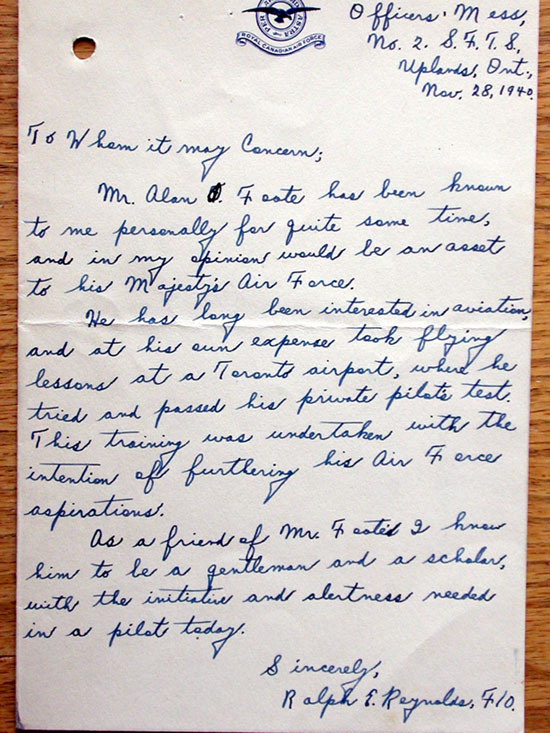 ASTRA
PER
ROYAL CANADIAN AIR FORCE
Officers' Mess,
No. 2. S.F.T.S,
Uplands, Ont.,
Nov. 28, 1940.
To Whom it may Concern;
Mr. Alan O. Foote has been known
to me personally for quite some time,
and in my opinion would be an asset
to his Majesty's Air Force.
He has long been interested in aviation,
and at his own expense took flying
lessons at a Toronto airport, where he
tried and passed his private pilots test.
This training was undertaken with the
intention of furthering his Air Force
aspirations.
As a friend of Mr. Foote's I know
him to be a gentleman and a scholar,
with the initiative and alertness needed
in a pilot today.
Sincerely,
Ralph E. Reynolds, F/O.